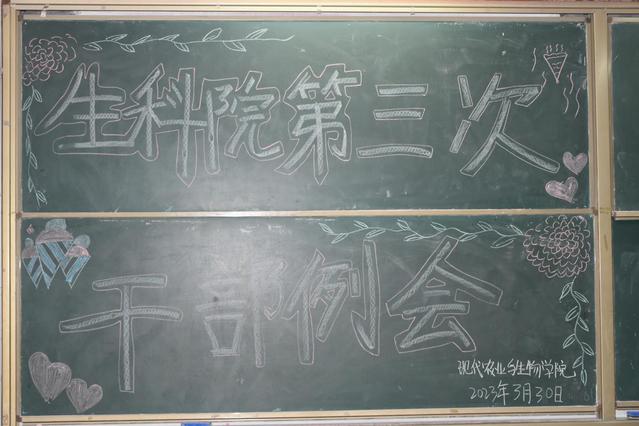 生科院第三次
干部例会
现代农业与生物学院
2023年3月30日